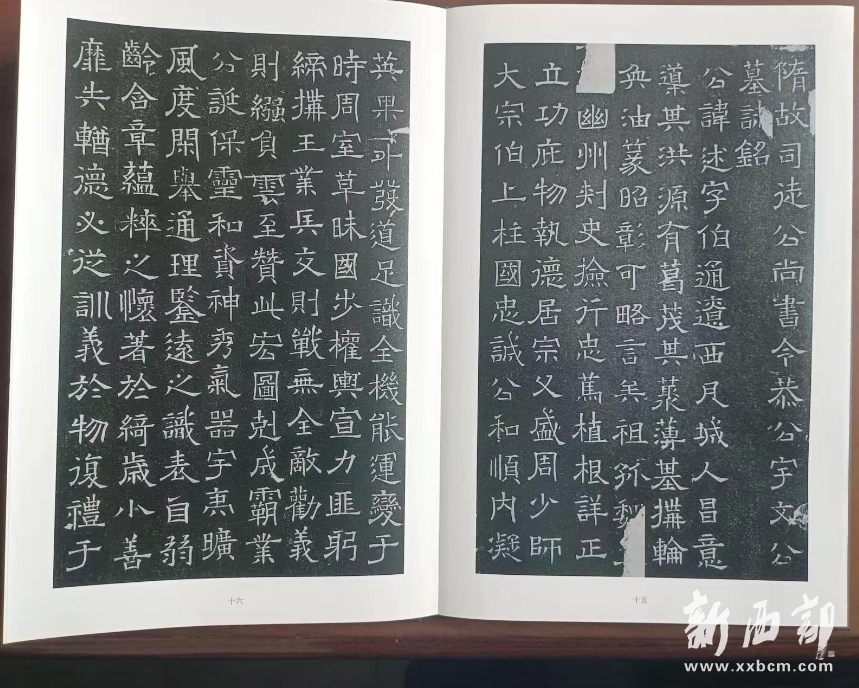 隋故司徒公尚書令恭公宇文公
墓誌銘
公諱述字伯通遼西月城人昌意
導其洪源有葛茂其蒸薄基搆輪
奐油篆昭彰可略言矣祖孫魏
幽州刺史撿行忠篤植根詳正
立功庇物執德居宗父盛周少師
大宗伯上柱國忠誠公和順內凝
十五
英果外發道足識全機能運變于
時周室草昧國步權輿宣力匪躬
締搆王業兵交則戰無全敵勸義
則繈負雲至贊此宏圖剋成霸業
公誕保靈和資神秀氣器宇夷曠
風度閑舉通理鑒遠之識表自弱
齡含章蘊粹之懷著於綺歲小善
靡失輶德必從訓義於物復禮于
十六
新西部
www.xxbcm.com